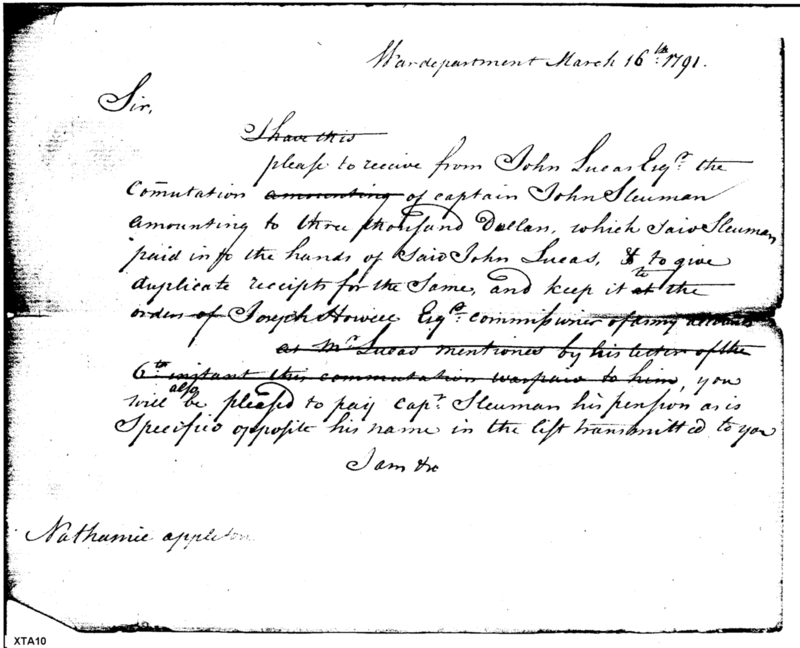 War department March 16th. 1791.
Sir,
I have this
please to receive from John Lucas Esqr. the
Com̅utation amounting of captain John Sleuman
amounting to three thousand Dollars, which said Sleuman
paid into the hands of said John Lucas, & to give
duplicate receipts for the same, and keep it at the
orders of Joseph Howell Esqr. commissioner of army accounts
as Mr Lucas mentiones by his letter of the
6th instant this commutation was paid to him, you
will also be pleased to pay capt. Sleuman his pension as is
Specified opposite his name in the list transmitted to you
I am &c
Nathaniel appleton
XTA10